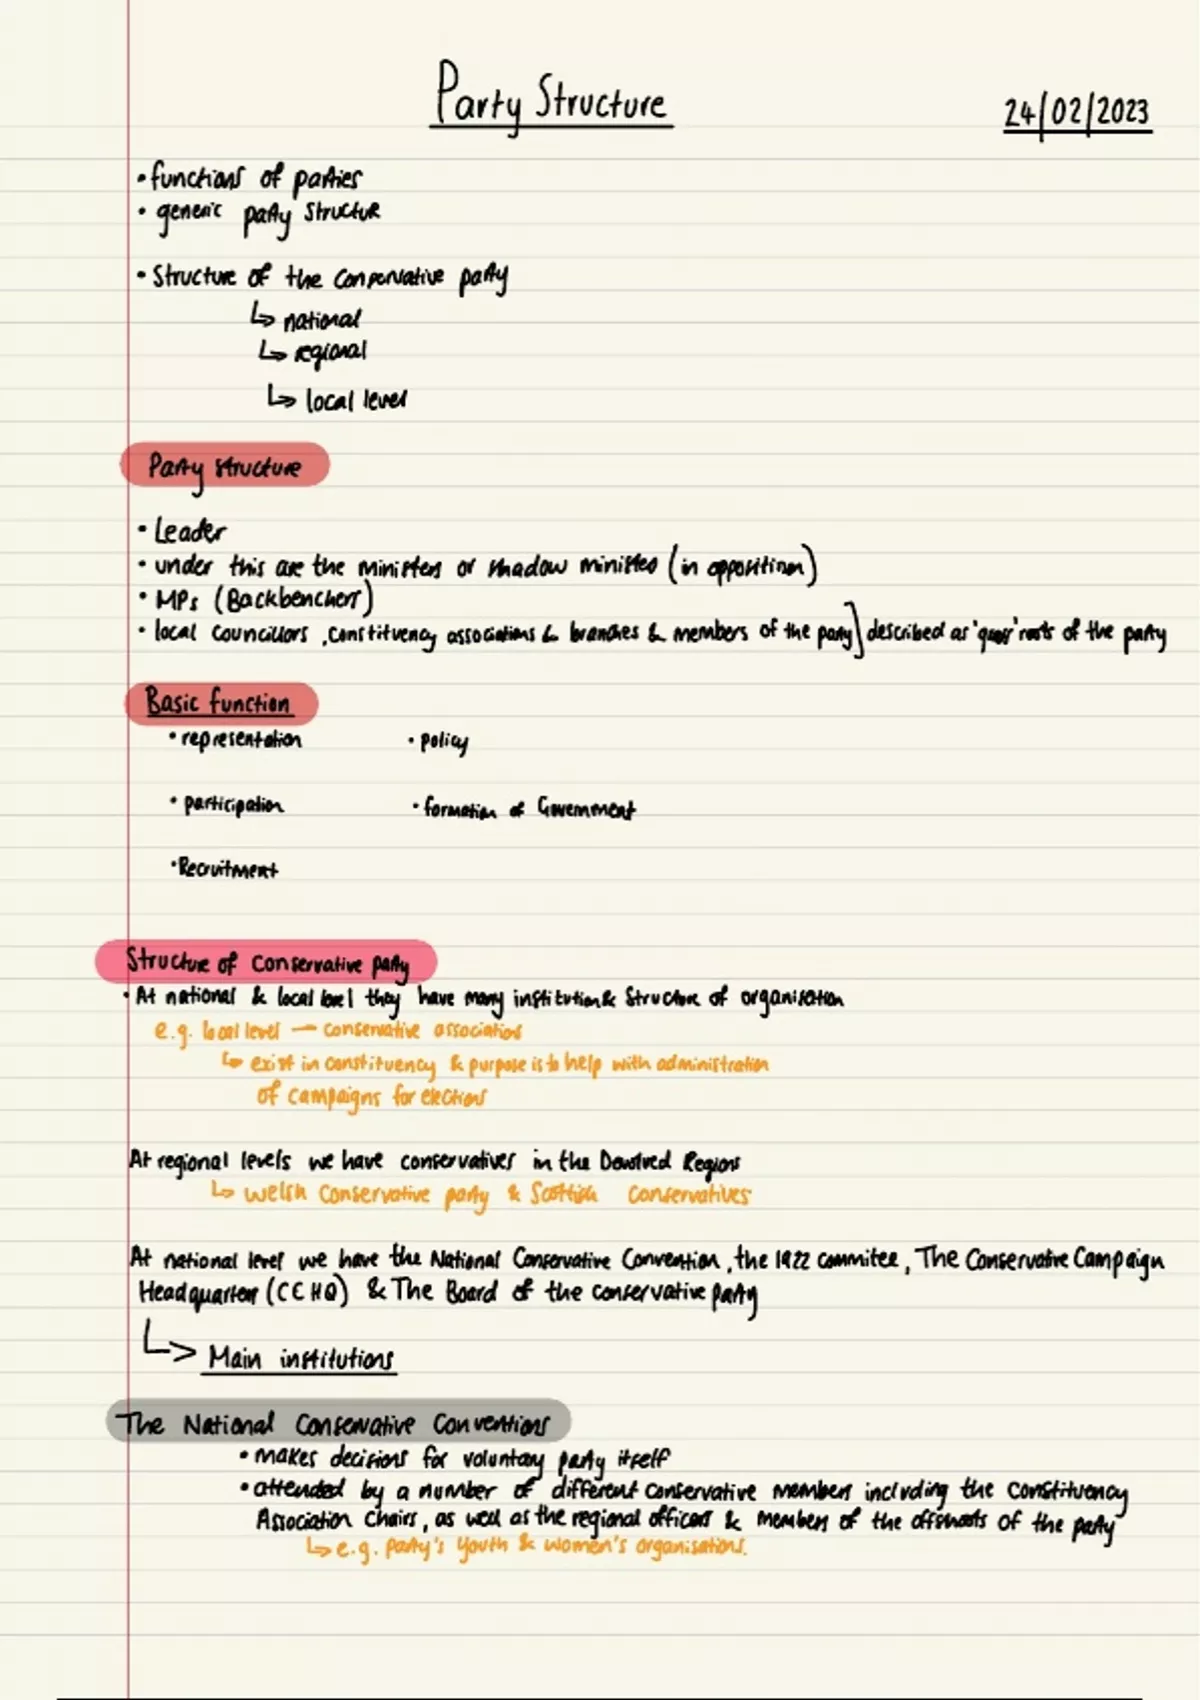 Party Structure
24/02/2023
• functions of parties
• generic party Structur
• Structure of the Conservative party
↳ national
↳ regional
↳ local level
Party structure
• Leader
• under this are the ministers or shadow ministers (in opposition)
• MPs (Backbenchers)
• local councillors, constituency associations & branches & members of the party] described as 'grass' roots of the party
Basic function
• representation • policy
• participation • formation of Government
• Recruitment
Structure of Conservative party
• At national & local level they have many institution & Structure of organisation
e.g. local level — conservative associations
↳ exist in constituency & purpose is to help with administration
of campaigns for elections
At regional levels we have conservatives in the Devolved Regions
↳ Welsh Conservative party & Scottish Conservatives
At national level we have the National Conservative Convention, the 1922 commitee, The Conservative Campaign
Headquarters (CCHQ) & The Board of the conservative party
↳ Main institutions
The National Conservative Conventions
• makes decisions for voluntary party itself
• attended by a number of different conservative members including the Constituency
Association Chairs, as well as the regional officers & members of the offshoots of the party
↳ e.g. party's youth & women's organisations.